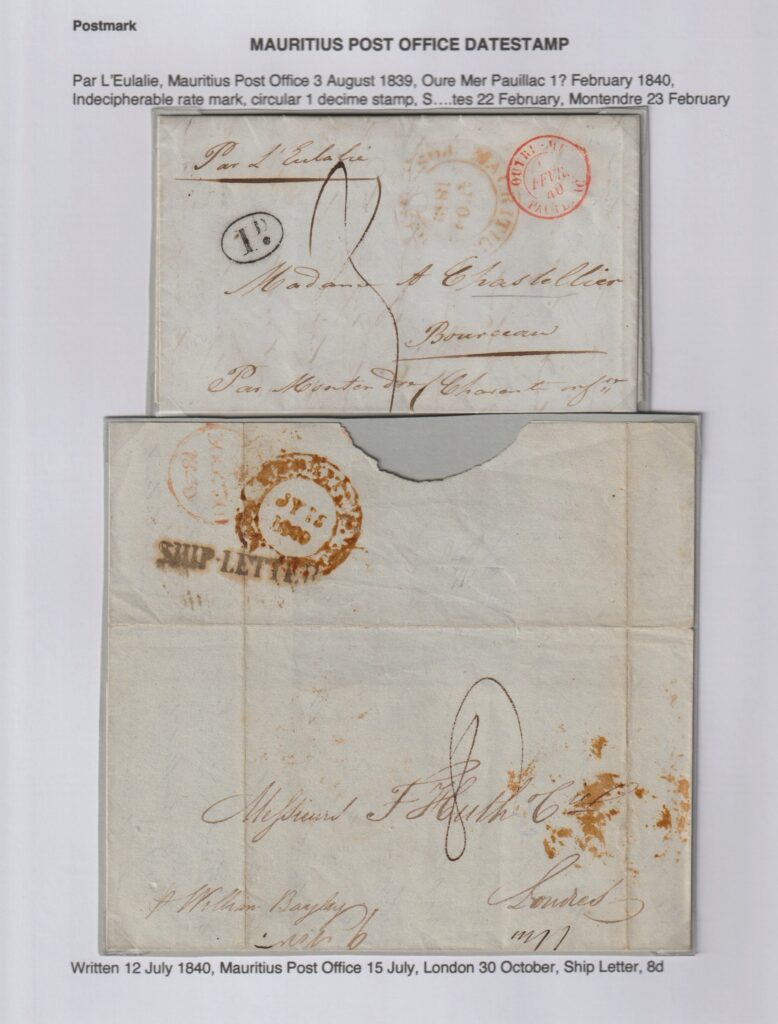 Postmark
MAURITIUS POST OFFICE DATESTAMP
Par L'Eulalie, Mauritius Post Office 3 August 1839, Oure Mer Pauillac 1? February 1840,
Indecipherable rate mark, circular 1 decime stamp, S....tes 22 February, Montendre 23 February
Par L'Eulalie
OUTRE-ME
FEVR.
40
1D.
Madame A Chastellier
Bourceau
Par Monten dre (Charente infre
JY 15
1840
SHIP-LETTER
8
Messieurs F Huth & Co
Londres
P William Bayley
Written 12 July 1840, Mauritius Post Office 15 July, London 30 October, Ship Letter, 8d